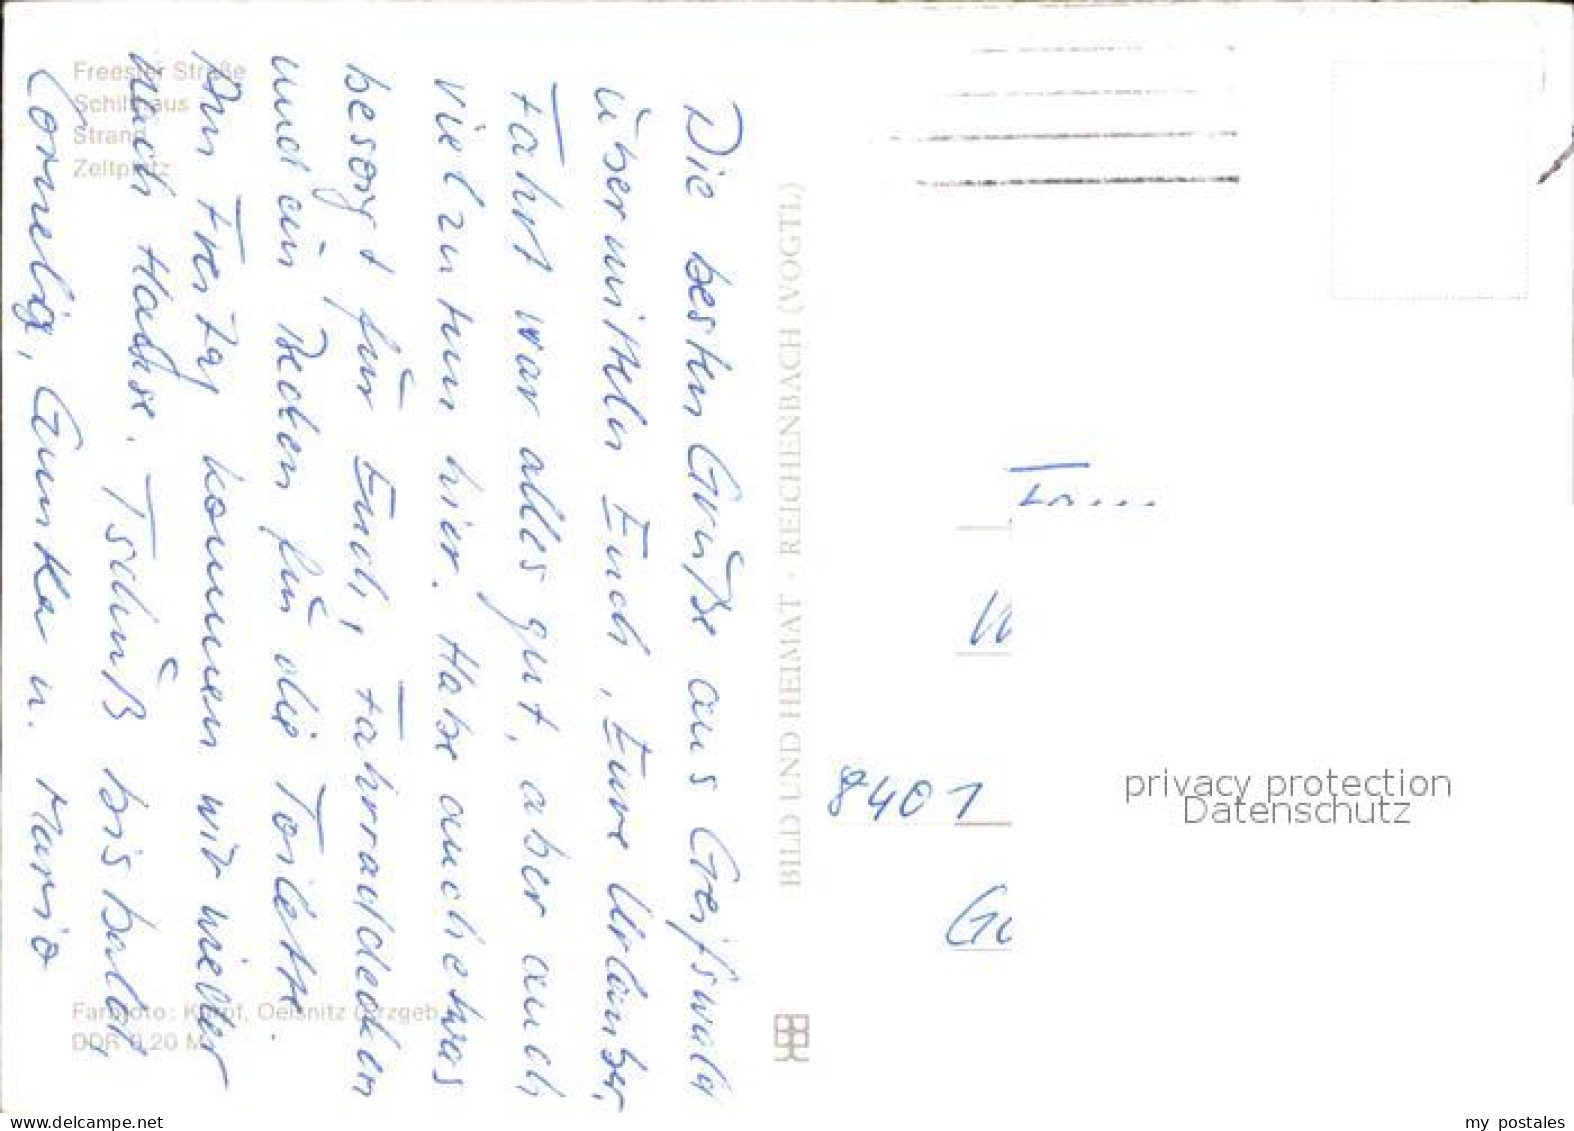 Freester Straße
Schilfhaus
Strand
Zeltplatz
Die besten Grüße aus Greifswald
übermitteln Euch, Eure Urlauber,
Fahrt war alles gut, aber auch
viel zu tun hier. Habe auch etwas
besorgt für Euch, Fahrraddecken
und ein Becken für die Toilette.
Am Freitag kommen wir wieder
nach Hause. Tschüß bis bald,
Cornelia, Gunter u. Mario
Farbfoto: Kämpf, Oelsnitz (Erzgeb.)
DDR 0,20 M
BILD UND HEIMAT · REICHENBACH (VOGTL)
8401
privacy protection
Datenschutz
www.delcampe.net
my_postales